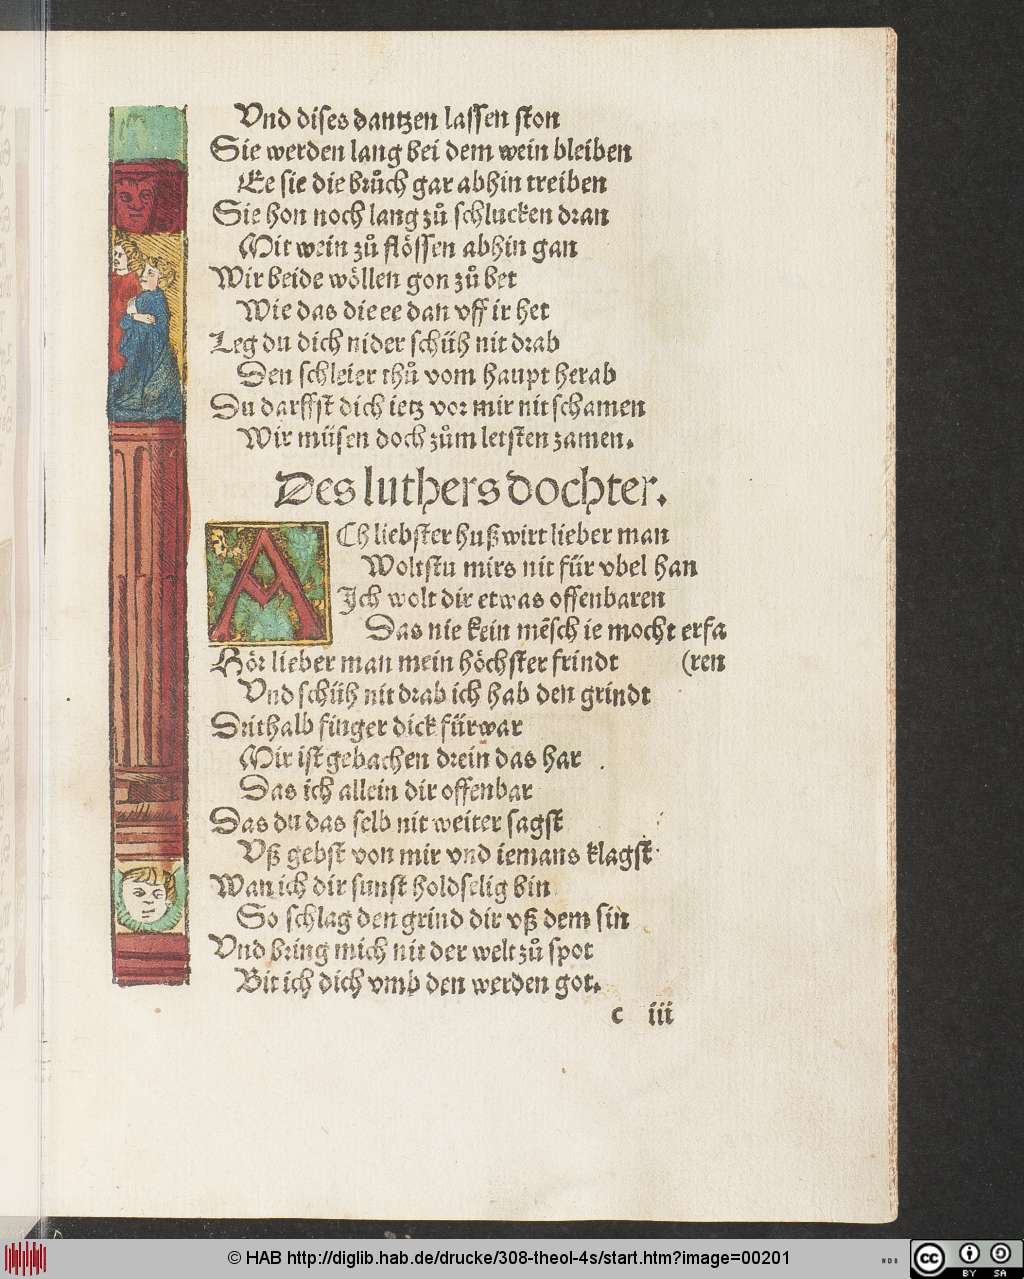 Vnd dises dantzen lassen ston
Sie werden lang bei dem wein bleiben
Ee sie die brůch gar abhin treiben
Sie hon noch lang zů schlucken dran
Mit wein zů flössen abhin gan
Wir beide wöllen gon zů bet
Wie das die ee dan vff ir het
Leg du dich nider schüh nit drab
Den schleier thů vom haupt herab
Du darffst dich ietz vor mir nit schamen
Wir müsen doch zům letsten zamen.
Des luthers dochter.
ACh liebster hußwirt lieber man
Woltstu mirs nit für vbel han
Ich wolt dir etwas offenbaren
Das nie kein mẽsch ie mocht erfa
Hör lieber man mein höchster frindt (ren
Vnd schüh nit drab ich hab den grindt
Drithalb finger dick fürwar
Mir ist gebachen drein das har
Das ich allein dir offenbar
Das du das selb nit weiter sagst
Vß gebst von mir vnd iemans klagst
Wan ich dir sunst holdselig bin
So schlag den grind dir vß dem sin
Vnd bring mich nit der welt zů spot
Bit ich dich vmb den werden got.
c iii
© HAB http://diglib.hab.de/drucke/308-theol-4s/start.htm?image=00201
WDB
cc BY SA